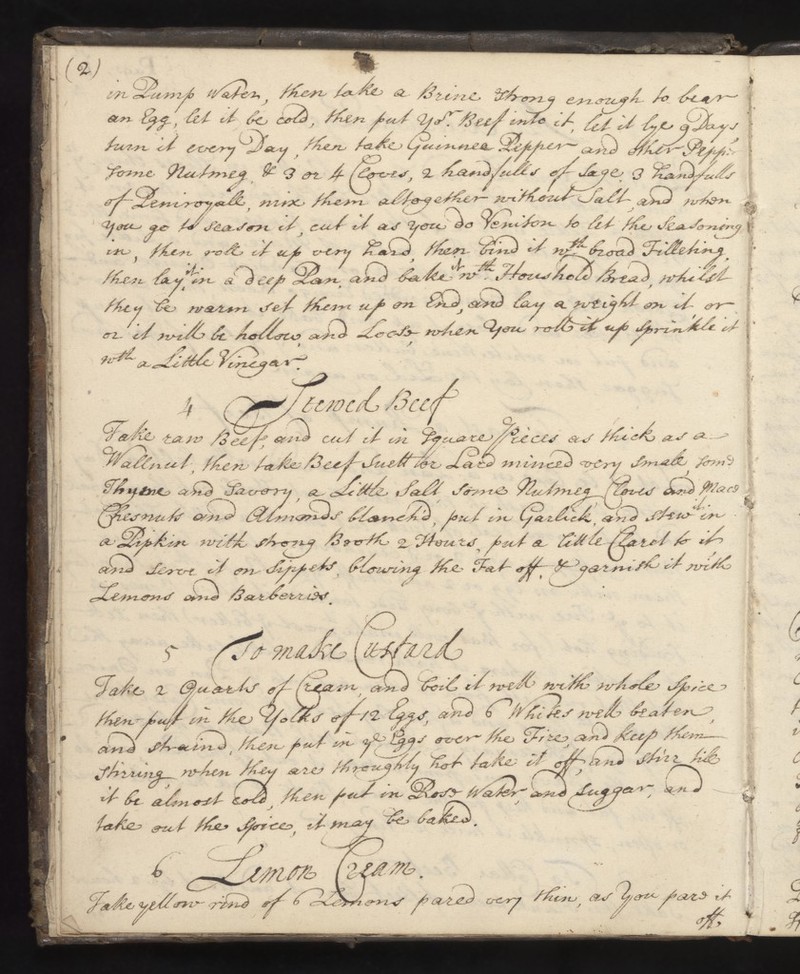 (2)
in Pump Water, then take a Brine strong enough to bear
an Egg, let it be cold, then put Yor. Beef into it, let it lye 9 Days
turn it every Day, then take Guinnea Pepper and other Pepp:r
some Nutmeg & 3 or 4 Cloves, 2 handfulls of Sage, 3 handfulls
of Peniroyall, mix them altogether without Salt, and when
You go to season it, cut it as you do Venison to let the Seasoning
in, then roll it up very hard, then bind it wth broad Filleting
then lay it in a deep Pan, and bake it wth Houshold Bread, whilst
they be warm set them up on End, and lay a weight on it or
or it will be hollow, and Loose, when You roll it up sprinkle it
wth a Little Vinegar.
4 Stewed Beef
Take raw Beef, and cut it in Square Pieces as thick as a
Wallnut, then take Beef Suett or Lard minced very smale, some
Thyme and Savory, a Little Salt some Nutmeg Cloves and Mace
Chesnuts and Almonds blanch'd, put in Garlick, and stew it in
a Pipkin with strong Broth 2 Hours, put a little Claret to it
and serve it on Sippets, blowing the Fat off, & garnish it with
Lemons and Barberries.
5 To make Custard
Take 2 Quarts of Cream, and boil it well with whole Spice
then put in the Yolks of 12 Eggs, and 6 Whites well beaten,
and straind, then put in ye Eggs over the Fire, and keep them
stirring, when they are throughly hot take it off, and stirr till
it be almost cold, then put in Rose Water, and Suggar, and
take out the Spice, it may be baked.
6 Lemon Cream.
Take yellow rind of 6 Lemons pared very thin, as You pare it
off,